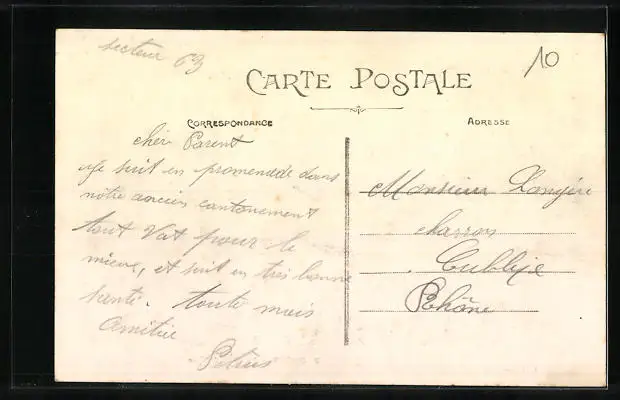 secteur 63
10
CARTE POSTALE
CORRESPONDANCE
ADRESSE
cher Parent
Je suit en promenade dans
nôtre ancien cantonement
tout Vat pour le
mieux, et suit en très bonne
santé. toute mais
Amitiée
Pétrus
Monsieur
charron
Cublize
Rhône